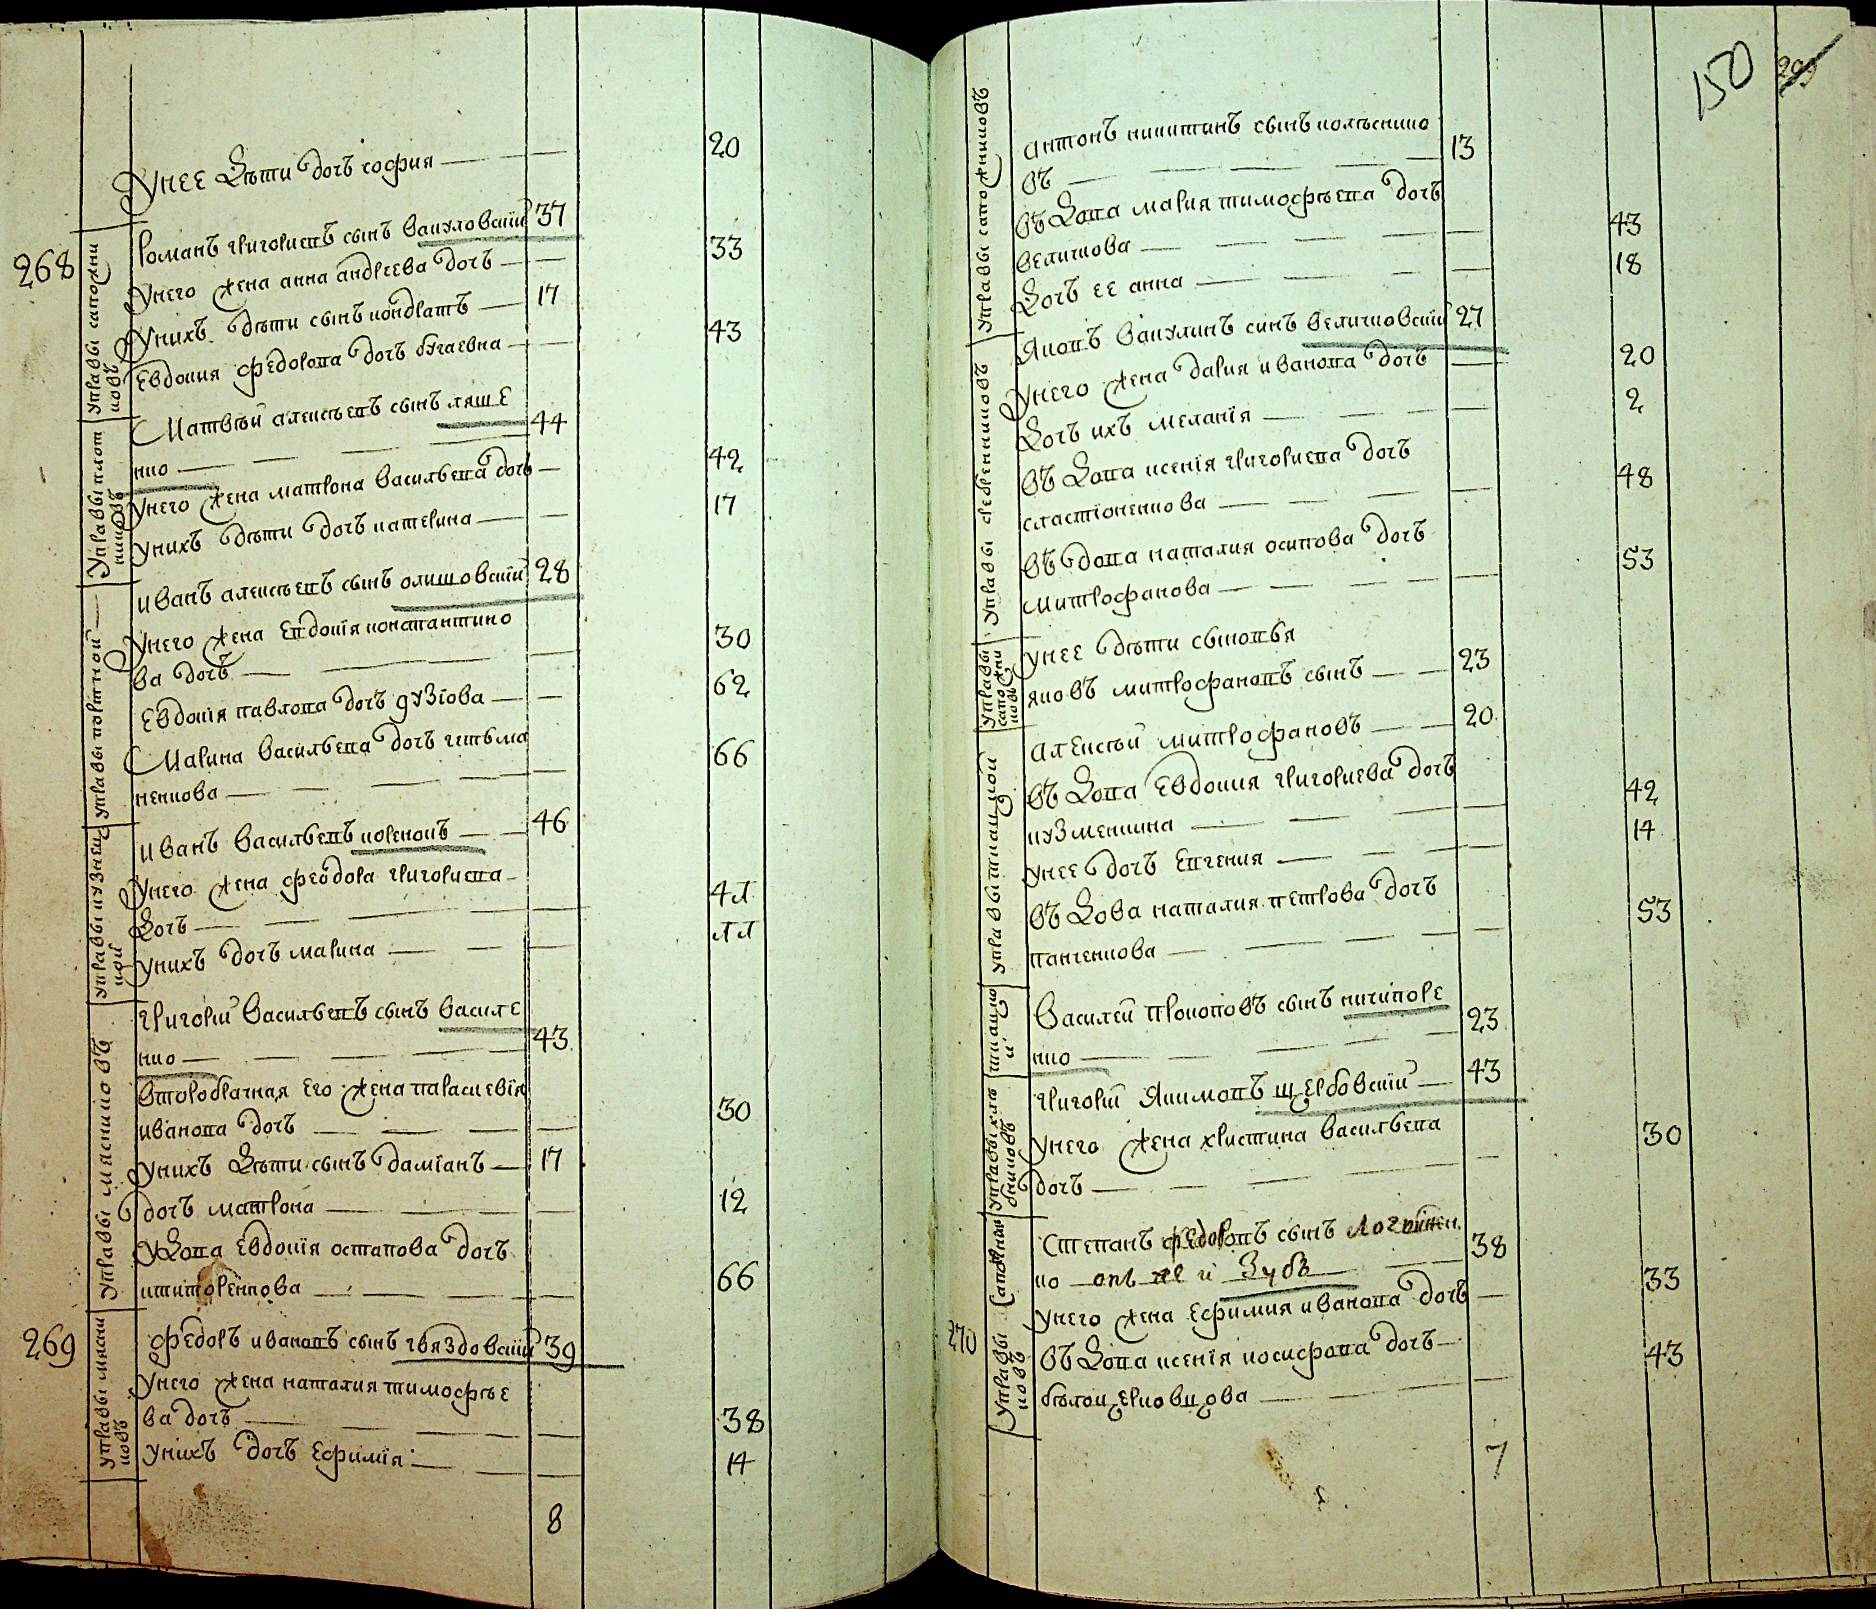 унее дѣти дочъ софия — 20
268
управы сапожни
ковъ
Романъ григориевъ сынъ вакуловский 37
унего жена анна андреева дочъ — 33
унихъ дѣти сынъ кондратъ — 17
Евдокия федорова дочъ бугаевна — 43
управы плот
ницовъ
Матвѣй алексѣевъ сынъ ляше
нко — 44
унего жена матрона васильева дочъ — 42
унихъ дѣти дочъ катерина — 17
управы портной —
иванъ алексѣевъ сынъ олишовский 28
унего жена Евдокія константино
ва дочъ — 30
Евдокія павлова дочъ — 62
Марина васильева дочъ
ненкова — 66
управы кузнец
кой
иванъ васильевъ коренокъ — 46
унего жена феодора григориева
дочъ — 4Л
унихъ дочъ марина — ЛЛ
управы мяснико въ
григорий васильевъ сынъ василе
нко — 43
второбрачная его жена параскевія
иванова дочъ — 30
унихъ дѣти сынъ даміанъ — 17
дочъ матрона — 12
удова евдокія остапова дочъ
шпоренкова — 66
269
управы мясни
ковъ
федоръ ивановъ сынъ гвяздовский 39
унего жена наталия тимофѣе
ва дочъ — 38
унихъ дочъ ефимія — 14
8
150
управы сапожниковъ
антонъ никитинъ сынъ колѣснико
въ — 13
въдова мария тимофѣева дочъ
величкова — 43
дочъ ее анна — 18
управы серебренниковъ
Яковъ вакулинъ синъ величковский 27
унего жена дария иванова дочъ — 20
дочъ ихъ меланія — 2
въдова ксенія григориева дочъ
сластіоненкова — 48
въдова наталия осипова дочъ
митрофанова — 53
управы
сапожни
ковъ
унее дѣти сыновья
яковъ митрофановъ сынъ — 23
управы ткацкой
алексѣй митрофановъ — 20
въдова евдокия григориева дочъ
кузменкина — 42
унее дочъ евгения — 14
въдова наталия петрова дочъ
панченкова — 53
ткацко
й
василей прокоповъ сынъ ничипоре
нко — 23
управы хлѣ
бниковъ
григорий Якимовъ щербовский — 43
унего жена христина васильева
дочъ — 30
270
управы сапожни
ковъ
Степанъ федоровъ сынъ логвинен
ко онъ же и Зубъ 38
унего жена ефимия иванова дочъ — 33
въдова ксенія иосифова дочъ —
бѣлоцерковцова — 43
7